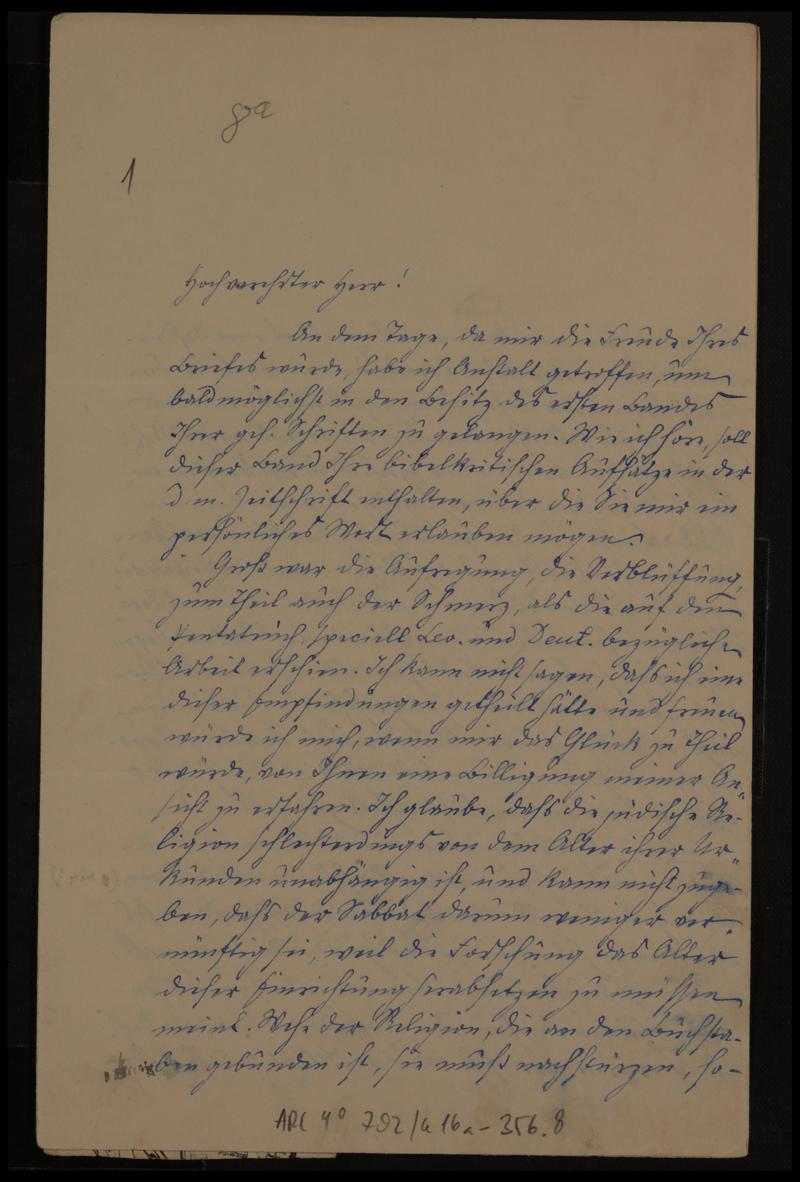 8a
1
Hochverehrter Herr!
An dem Tage, da mir die Freude Ihres
Briefes wurde, habe ich Anstalt getroffen, um
baldmöglichst in den Besitz des ersten Bandes
Ihrer ges. Schriften zu gelangen. Wie ich höre, soll
dieser Band Ihre bibelkritischen Aufsätze in der
d. m. Zeitschrift enthalten, über die Sie mir ein
persönliches Wort erlauben mögen.
Groß war die Aufregung, die Verblüffung,
zum Theil auch der Schmerz, als die auf den
Pentateuch, speciell Lev. und Deut. bezügliche
Arbeit erschien. Ich kann nicht sagen, dass ich eine
dieser Empfindungen getheilt hätte und freuen
würde ich mich, wenn mir das Glück zu Theil
würde, von Ihnen eine Billigung meiner An-
sicht zu erfahren. Ich glaube, dass die jüdische Re-
ligion schlechterdings von dem Alter ihrer Ur-
kunden unabhängig ist, und kann nicht zuge-
ben, dass der Sabbat darum weniger ver-
nünftig sei, weil die Forschung das Alter
dieser Einrichtung herabsetzen zu müssen
meint. Wehe der Religion, die an den Buchsta-
ben gebunden ist, sie muß nachstürzen, so-
ARC 4° 792/G 16a - 356.8